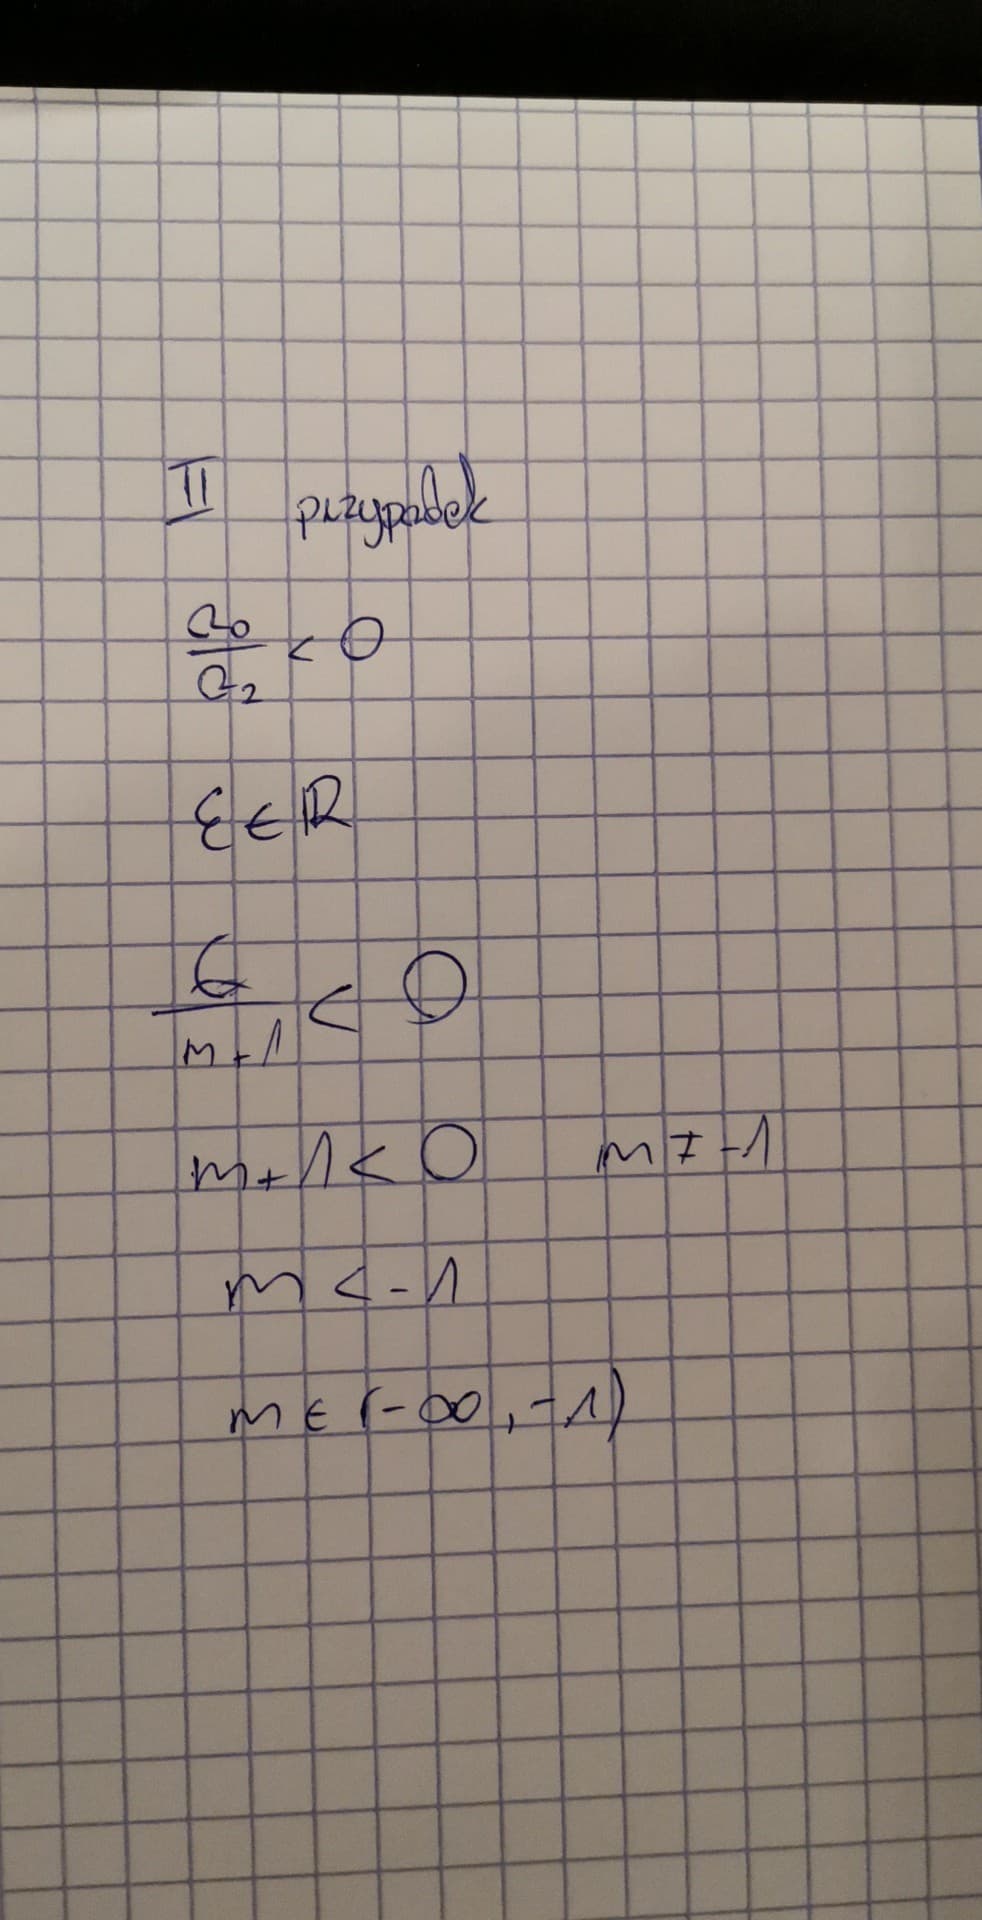 II przypadek
a₀/a₂ < 0
ξ ∈ ℝ
6/m+1 < 0
m+1 < 0 m ≠ -1
m < -1
m ∈ (-∞, -1)